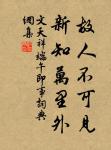 故人不可見
新知萬里外
文天祥端午即事詞典
網集